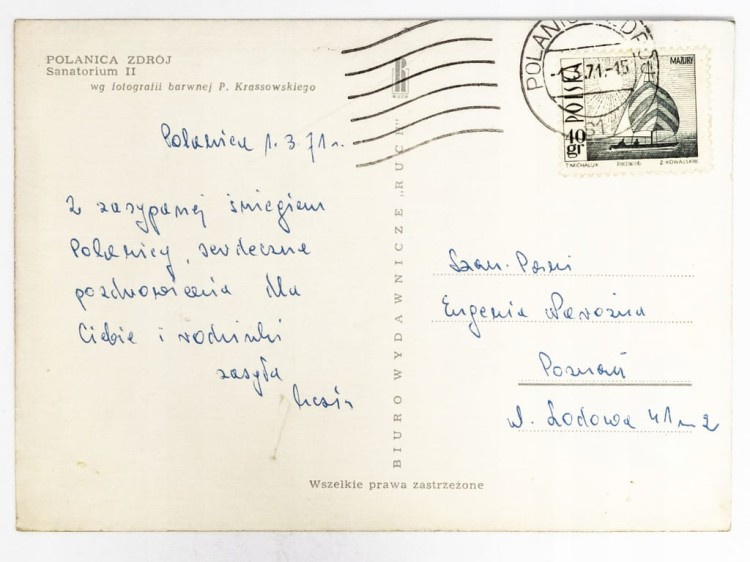 POLANICA ZDRÓJ
Sanatorium II
wg fotografii barwnej P. Krassowskiego
Polanica 1.3.71 r.
Z zasypanej śniegiem
Polanicy, serdeczne
pozdrowienia dla
Ciebie i rodzinki
zasyła
BIURO WYDAWNICZE „RUCH”
Wszelkie prawa zastrzeżone
POLANIC ZDRÓJ
-1.3.71.-15
POLSKA
40 gr
MAZURY
T. MICHALUK
Z. KOWALSKI
Szan. Pani
Eugenia
Poznań
ul. Lodowa 41 m 2